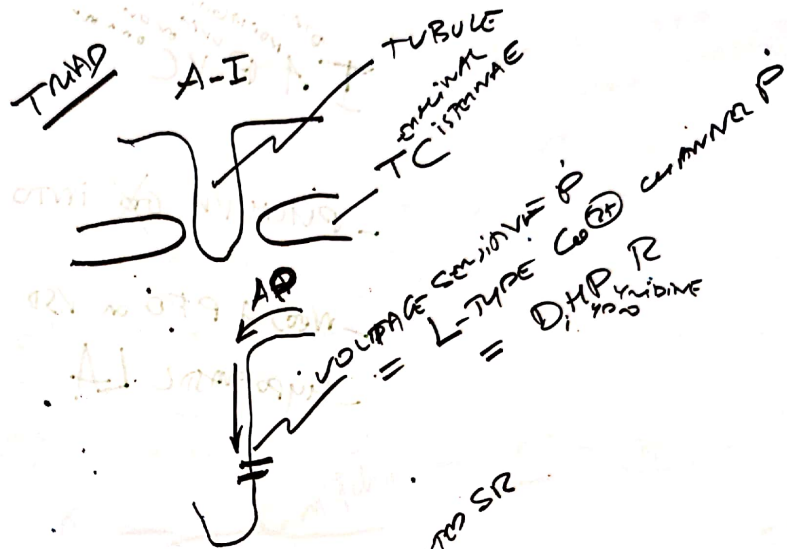 TRIAD
A-I
TUBULE
TERMINAL CISTERNAE
AP
VOLTAGE SENSITIVE P
= L-TYPE Ca2+ CHANNEL P
= DiHydroPyridine R
SR